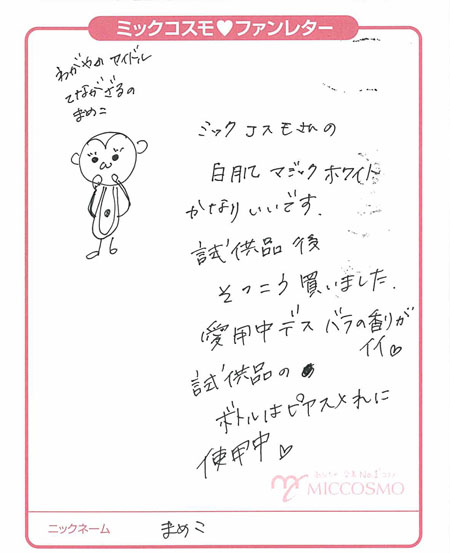 ミックコスモ♥ファンレター
わがやの アイドル
てながざるの
まめこ
ミックコスモさんの
白肌 マジックホワイト
かなりいいです.
試供品 後
そっこう買いました.
愛用中デス バラの香りが
イイ♡
試供品の
ボトルはピアス入れに
使用中♡
MICCOSMO
ニックネーム
まめこ